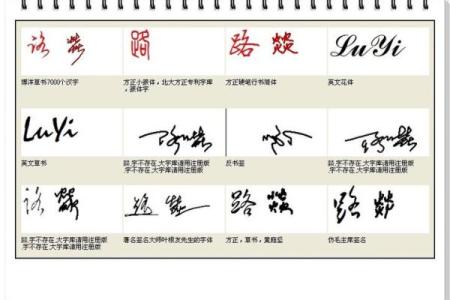 路燚
路
路燚
LuYi
博洋草书7000个汉字
方正小篆体，北大方正专利字库
，篆体字
方正硬笔行书简体
英文花体
LuYi
英文草书
,字不存在,大字库请用注册版
,字不存在,大字库请用注册版
反书签
,字不存在,大字库请用注册版
,字不存在,大字库请用注册版
路燚
路燚
路燚
路燚
,字不存在,大字库请用注册版
,字不存在,大字库请用注册版
著名签名大师叶根友先生的字体
方正，草书，黄庭坚
仿毛主席签名